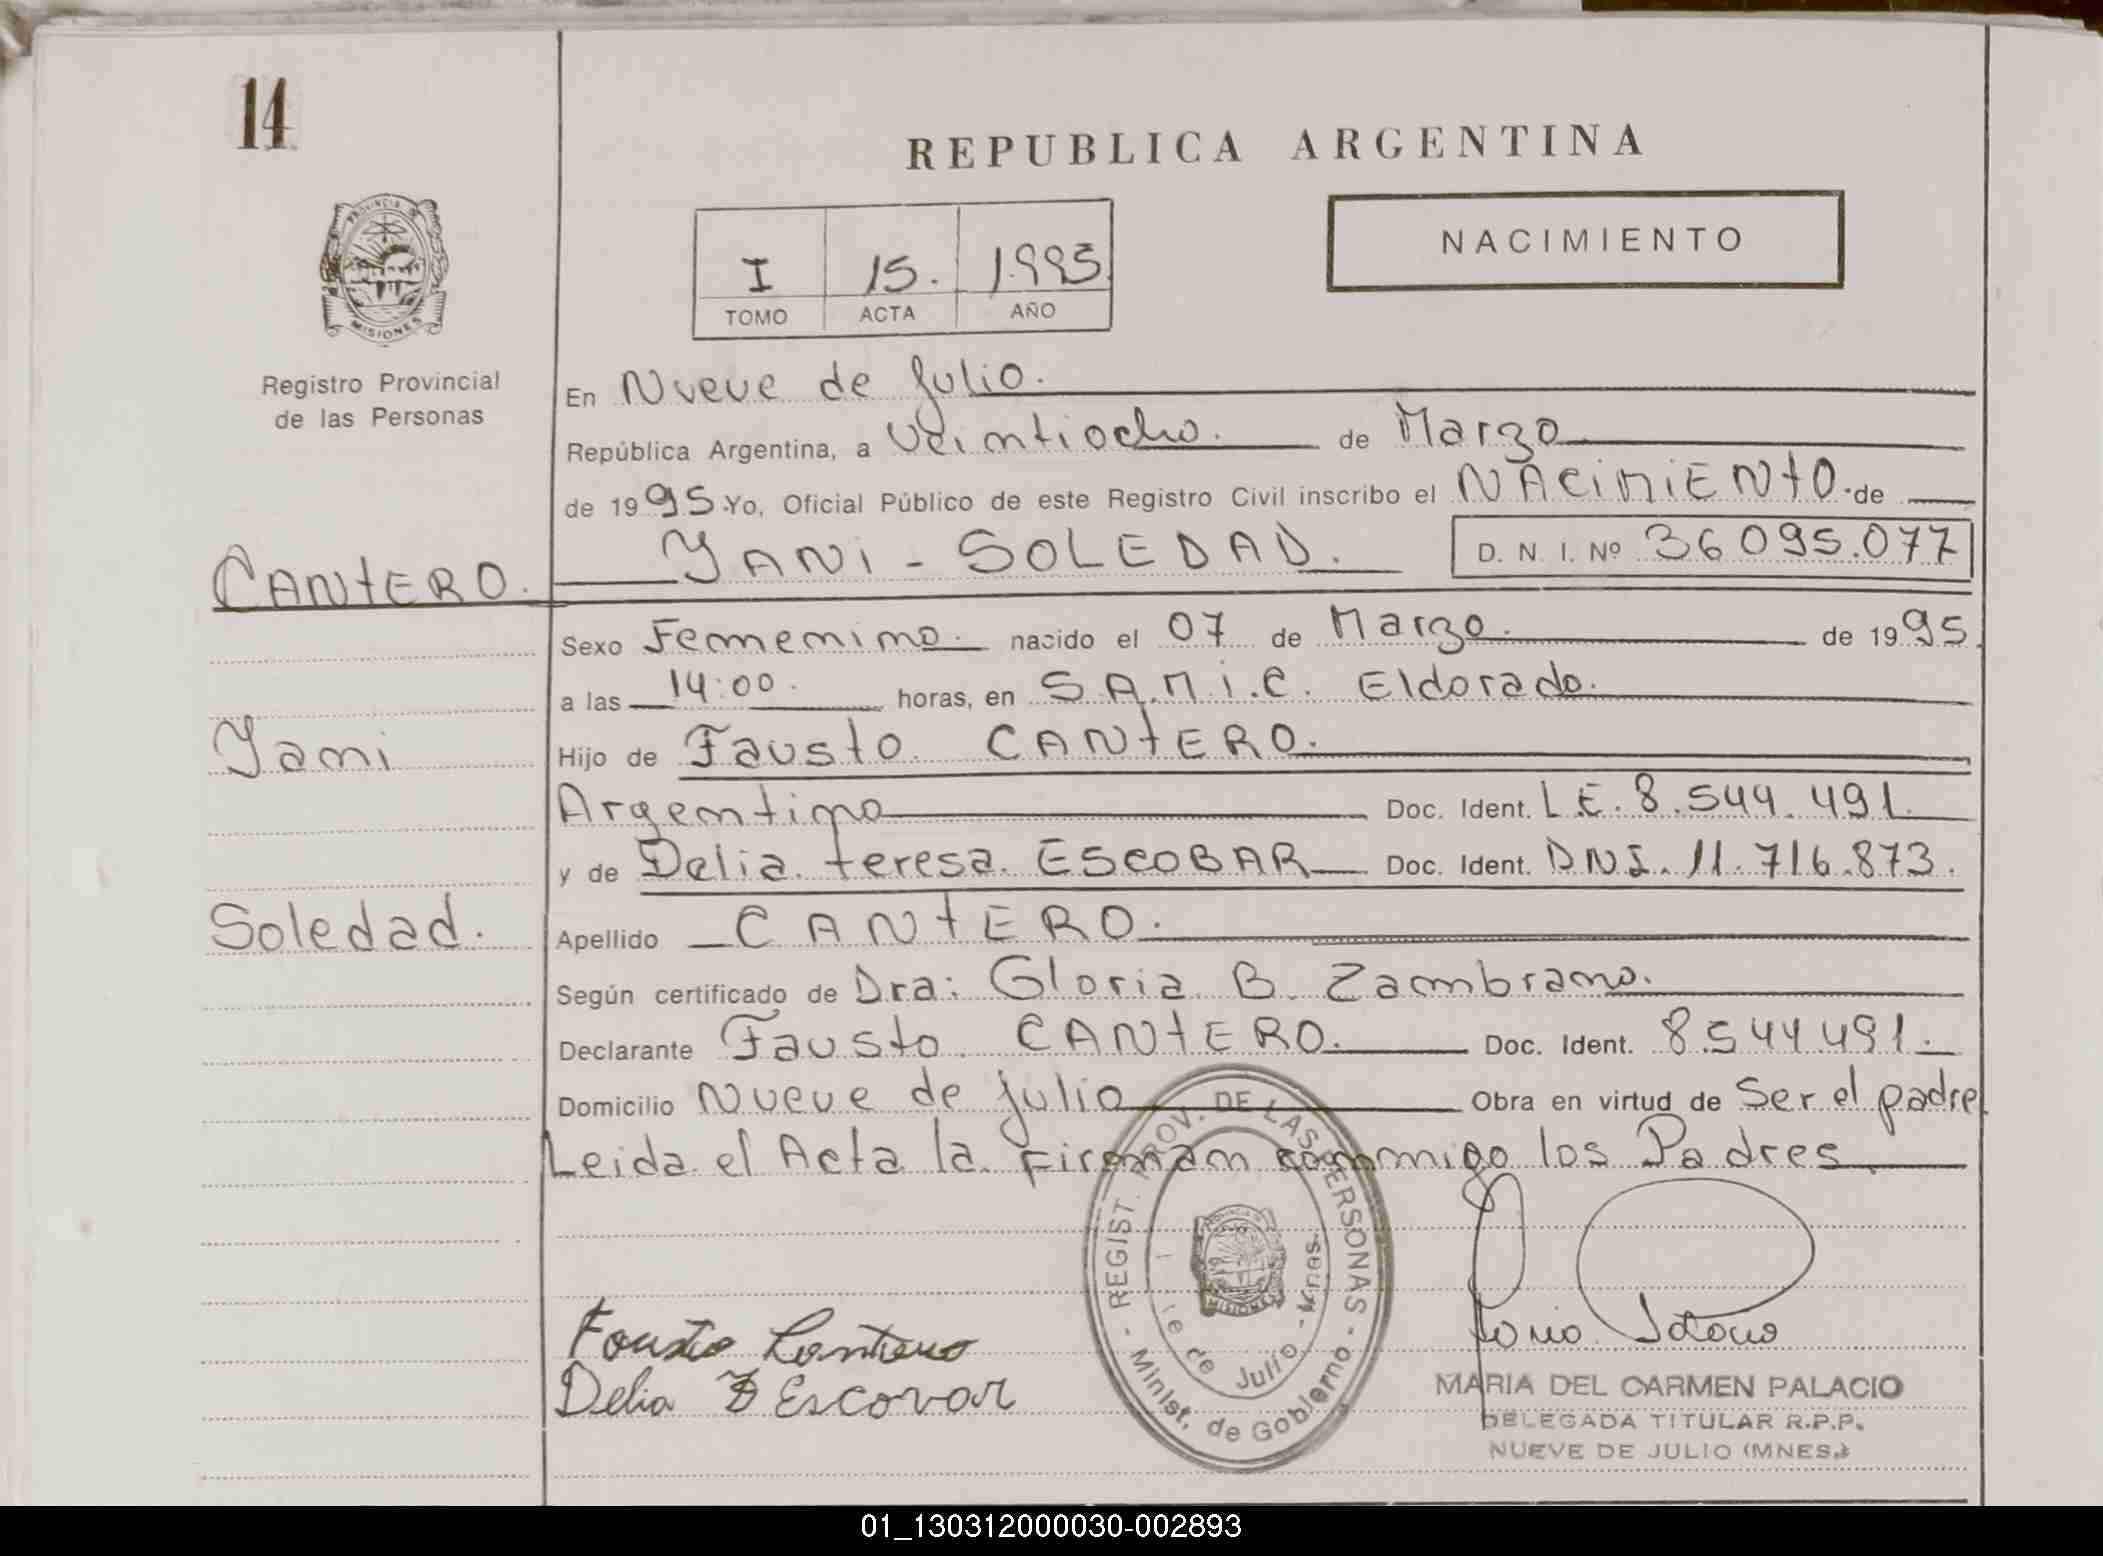 14
REPUBLICA ARGENTINA
PROVINCIA DE
MISIONES
I 15. 1.995
TOMO ACTA AÑO
NACIMIENTO
Registro Provincial
de las Personas
En Nueve de Julio.
República Argentina, a Veintiocho. de Marzo
de 1995 Yo, Oficial Público de este Registro Civil inscribo el NACIMIENTO de
CANTERO. YANI - SOLEDAD. D. N. I. Nº 36.095.077
Sexo Femenino. nacido el 07 de Marzo. de 1995
a las 14:00. horas, en S.A.M.I.C. Eldorado.
Yani Hijo de Fausto CANTERO.
Argentino Doc. Ident. L.E. 8.544.491.
y de Delia teresa ESCOBAR Doc. Ident. DNI. 11.716.873.
Soledad. Apellido CANTERO.
Según certificado de Dra: Gloria B. Zambrano.
Declarante Fausto CANTERO. Doc. Ident. 8.544.491.
Domicilio Nueve de Julio Obra en virtud de Ser el padre
Leida el Acta la Firman conmigo los Padres.
REGIST. PROV. DE LAS PERSONAS - Minist. de Gobierno -
de Julio - Mnes.
MISIONES
Fausto Cantero
Delia T Escovar
MARIA DEL CARMEN PALACIO
DELEGADA TITULAR R.P.P.
NUEVE DE JULIO (MNES.)
01_130312000030-002893